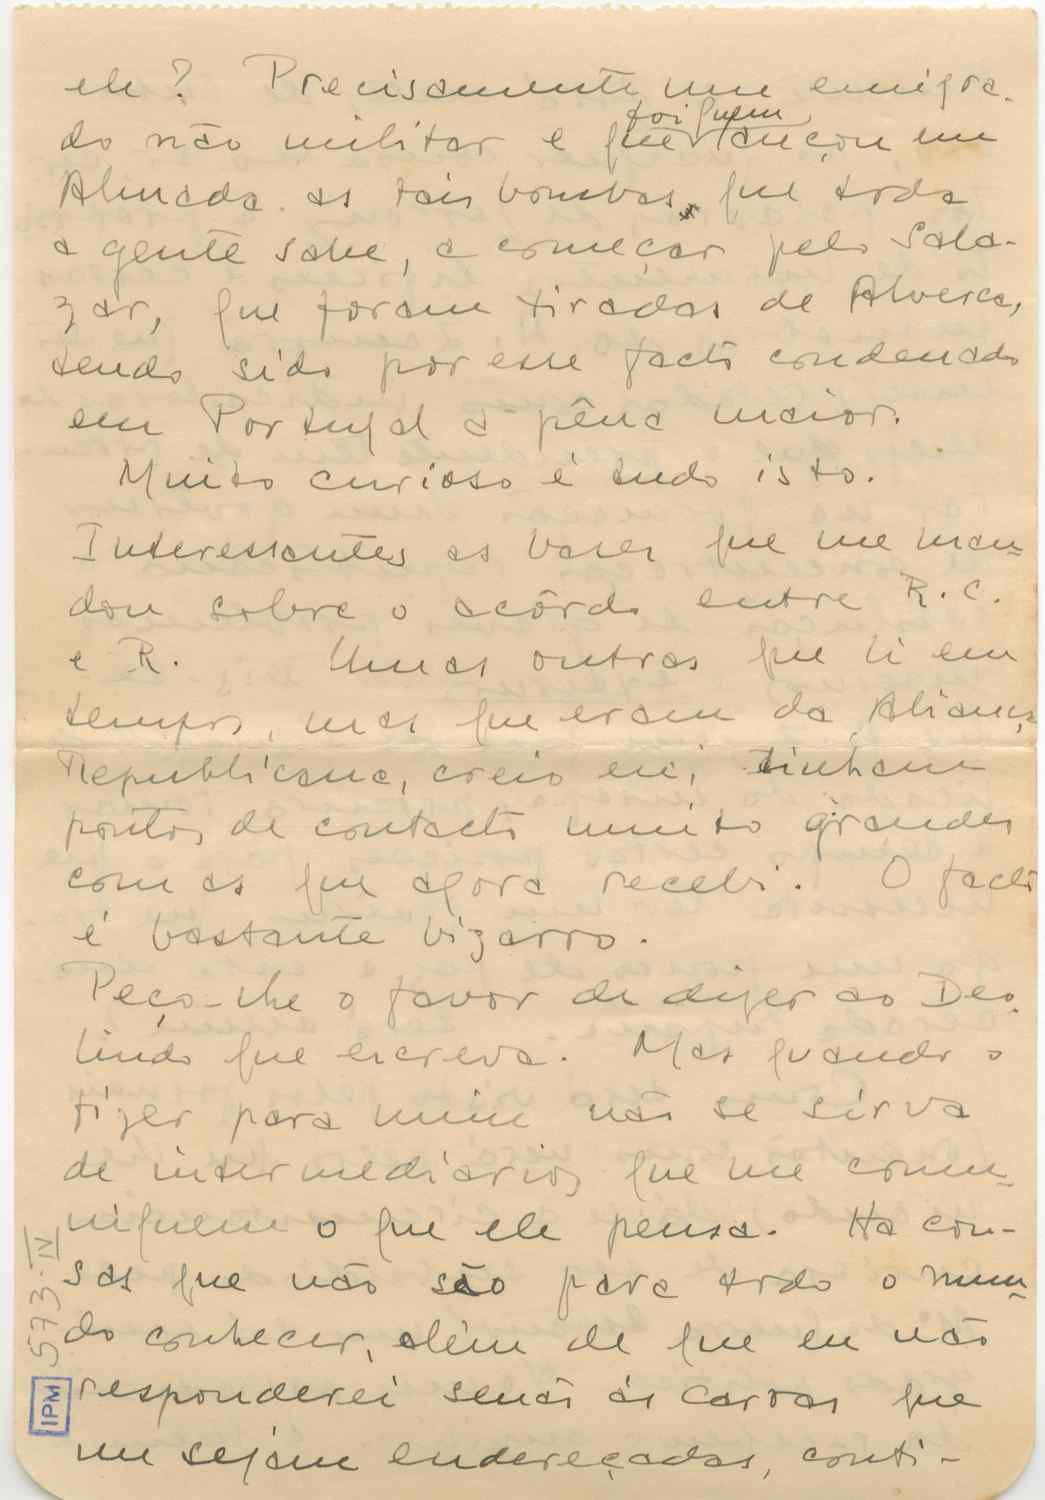 ele? Precisamente um emigra-
do não militar e foi quem
que lançou em
Almada as tais bombas, que toda
a gente sabe, a começar pelo Sala-
zar, que foram tiradas de Alverca,
tendo sido por esse facto condenado
em Portugal a pêna maior.
Muito curioso é tudo isto.
Interessantes as bases que me man-
dou sobre o acôrdo entre R.C.
e R. Umas outras que li em
tempos, mas que eram da Aliança
Republicana, creio eu, tinham
pontos de contacto muito grandes
com as que agora recebi. O facto
é bastante bizarro.
Peço-lhe o favor de dizer ao Deo-
lindo que escreva. Mas quando o
fizer para mim não se sirva
de intermediarios que me comu-
niquem o que ele pensa. Ha cou-
sas que não são para todo o mun-
do conhecer, além de que eu não
responderei senão ás cartas que
me sejam endereçadas, conti-
573-IV
IPM